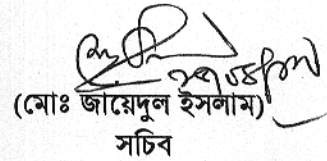 (মোঃ জায়েদুল ইসলাম)
সচিব